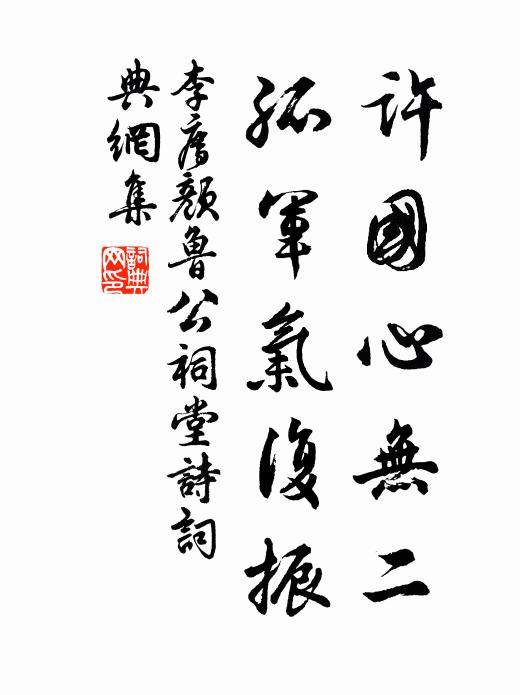 許國心無二
孤軍氣復振
李廌顏魯公祠堂詩詞
典網集
詞典
网印